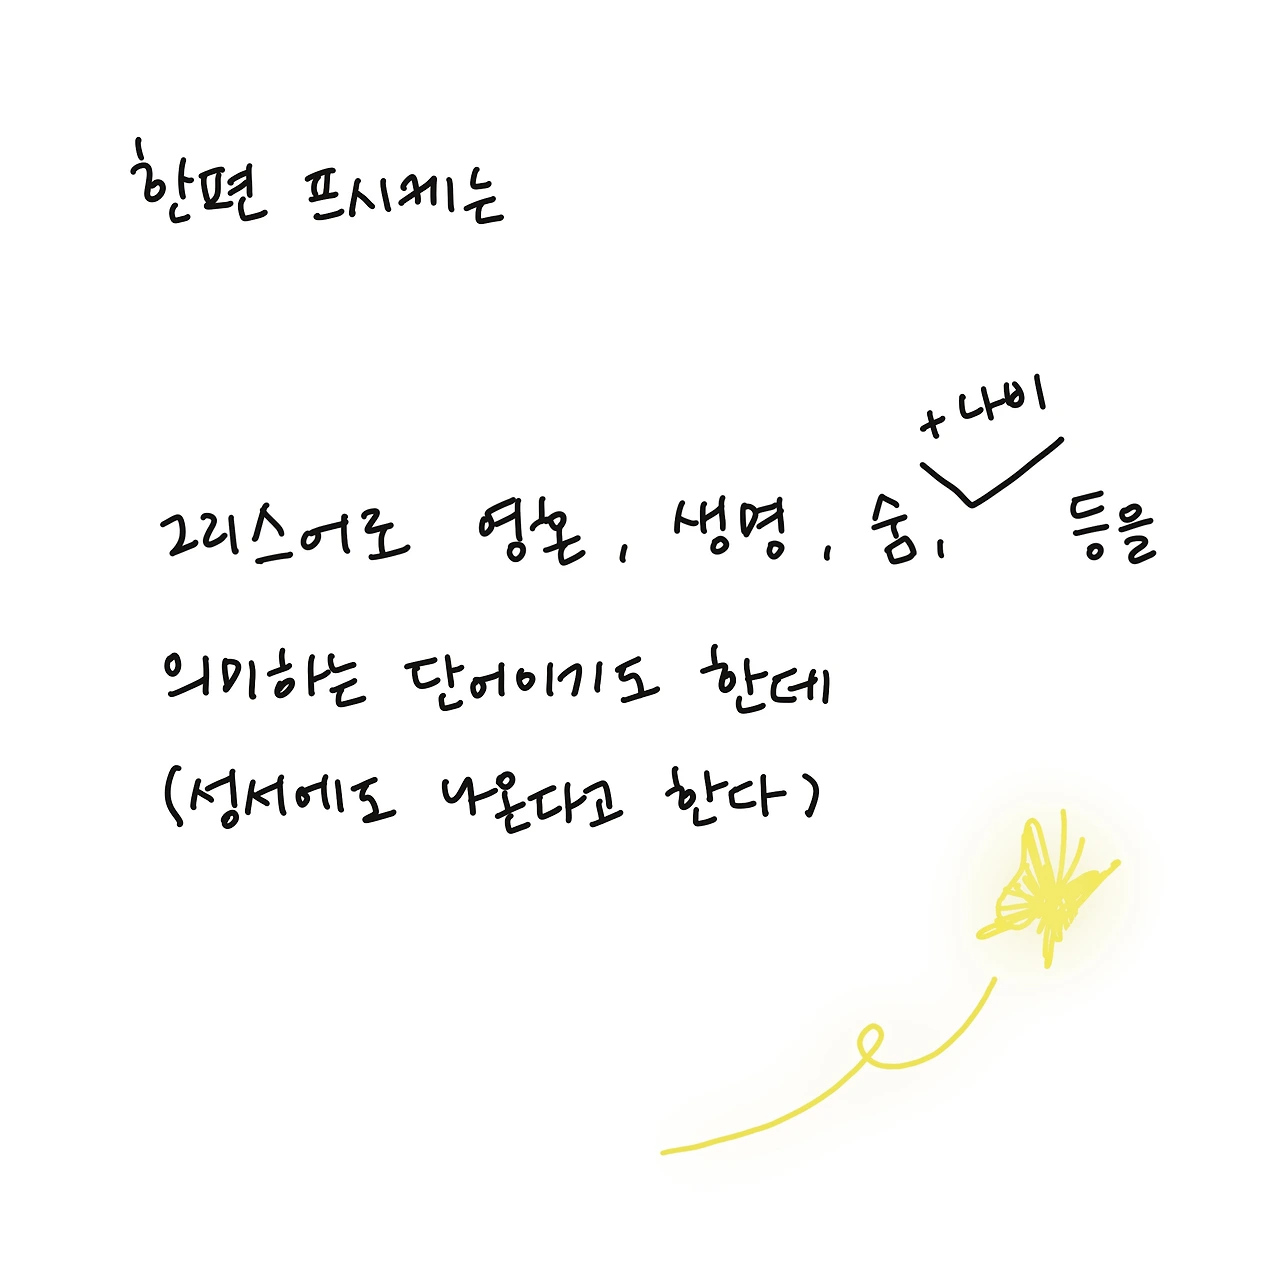 한편 프시케는
+ 나비
그리스어로 영혼, 생명, 숨, 등을
의미하는 단어이기도 한데
(성서에도 나온다고 한다)